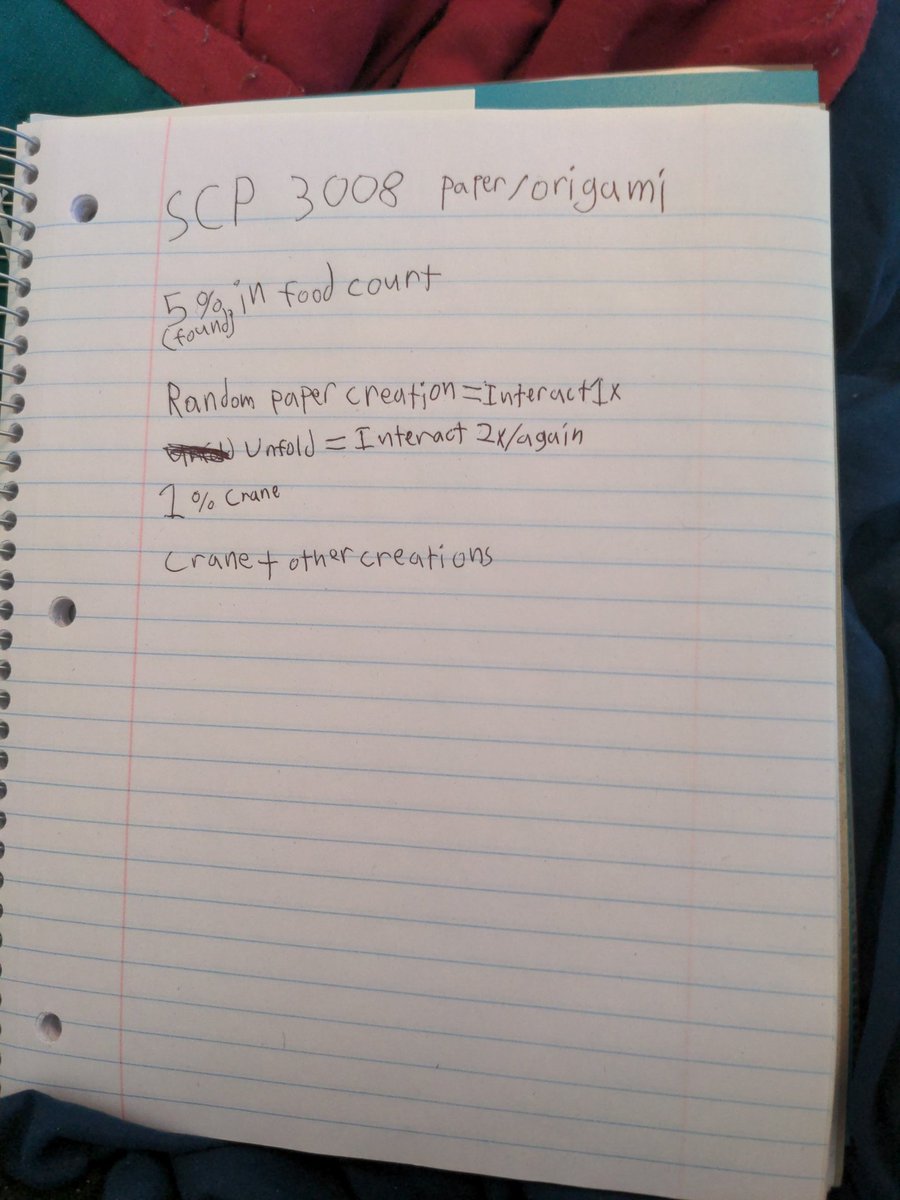 SCP 3008 paper/origami
5% in food count
(found)
Random paper creation = Interact 1x
Unfold = Interact 2x/again
1% Crane
Crane + other creations